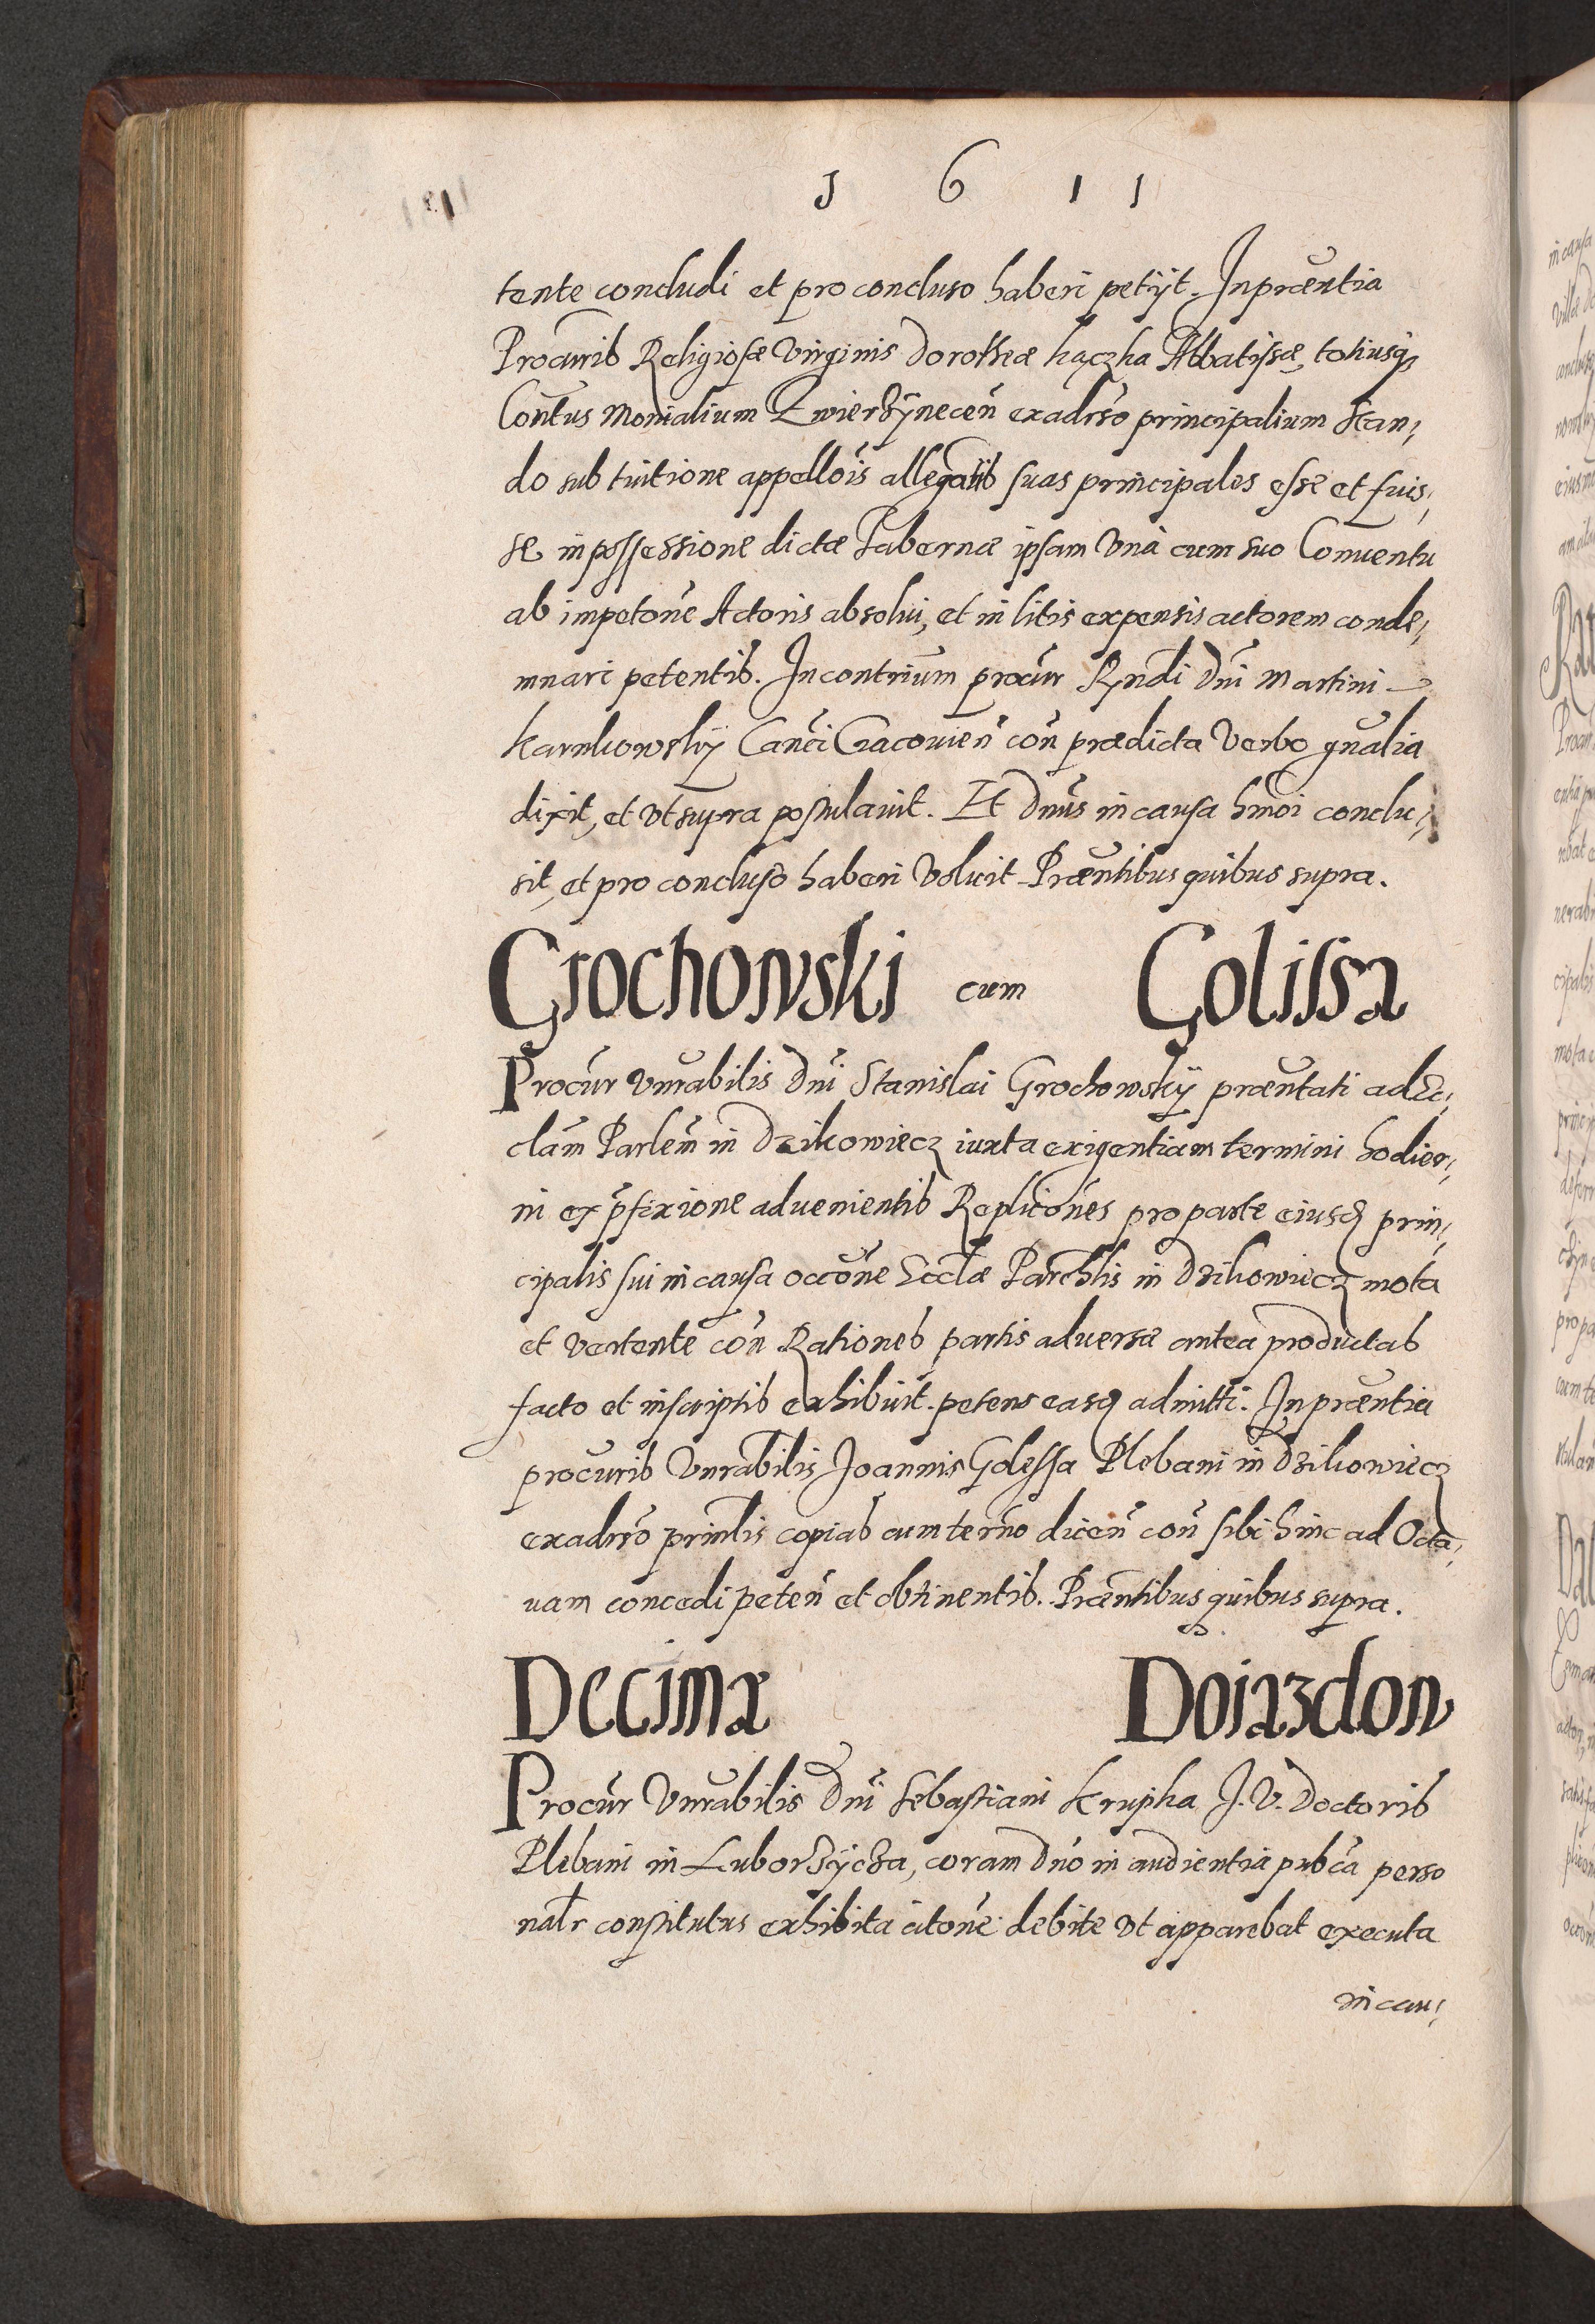 1 6 1 1
tente concludi et pro conclu­so haberi petijt. In præntia
Procuris Religiosæ Virginis Dorotheæ kączka Abbatissæ totiusq;
Contus Monialium Zwierzÿnecen̄ ex adrso principalium stan,
do sub tuitione appellois allegatis suas principales esse et fuis,
se in possessione dictæ Tabernæ ipsam Vnà cum suo Conuentu
ab impetone Actoris absolui, et in litis expensis actorem conde,
mnari petentis. In contrium procur Rndi Dni Martini
karnkowskÿ Canci Cracouien̄ con prædicta Verbo gnalia
dixit, et vt supra postulauit. Et Dnus in causa hmoi conclu,
sit, et pro concluso haberi Voluit Præntibus quibus supra.
Grochowski cum Golissa
Procur Vnrabilis Dni Stanislai Grochowskÿ præntati ad Ec,
clam Parlem in Dzikowiecz iuxta exigentiam termini hodier,
ni ex pfixione aduenientis Replicones pro parte eiusq prin,
cipalis sui in causa occone Ecclæ Parchlis in Dzikowiecz mota
et vertente con Rationes partis aduersæ antea productas
facto et in scriptis exhibuit. petens easq admitti. In præntia
procuris Vnrabilis Joannis Golessa Plebani in Dzikowiecz
ex adrso prinlis copias cum terno dicen̄ con sibi hinc ad Octa,
uam concedi peten̄ et obtinentis. Præntibus quibus supra.
Decimæ Doiazdow
Procur Vnrabilis Dni Sebastiani Krupka J. V. Doctoris
Plebani in Luborzÿcza, coram Dno in audientia pubca perso
nalr constitutus exhibita citone debite vt apparebat executa
in cau,